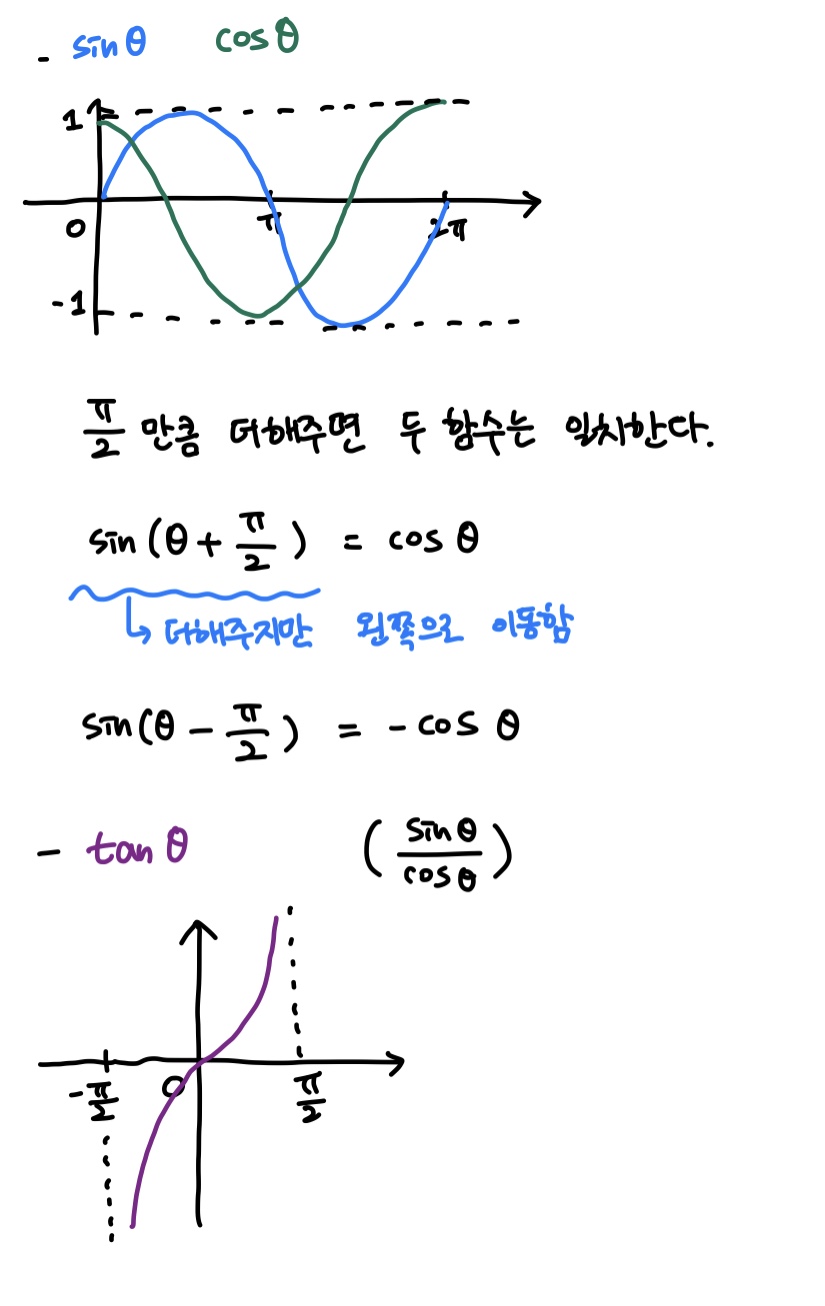 - sinθ cosθ
1
0 π 2π
-1
π/2 만큼 더해주면 두 함수는 일치한다.
sin(θ + π/2) = cos θ
↳ 더해주지만 왼쪽으로 이동함
sin(θ - π/2) = - cos θ
- tan θ (sinθ/cosθ)
-π/2 0 π/2